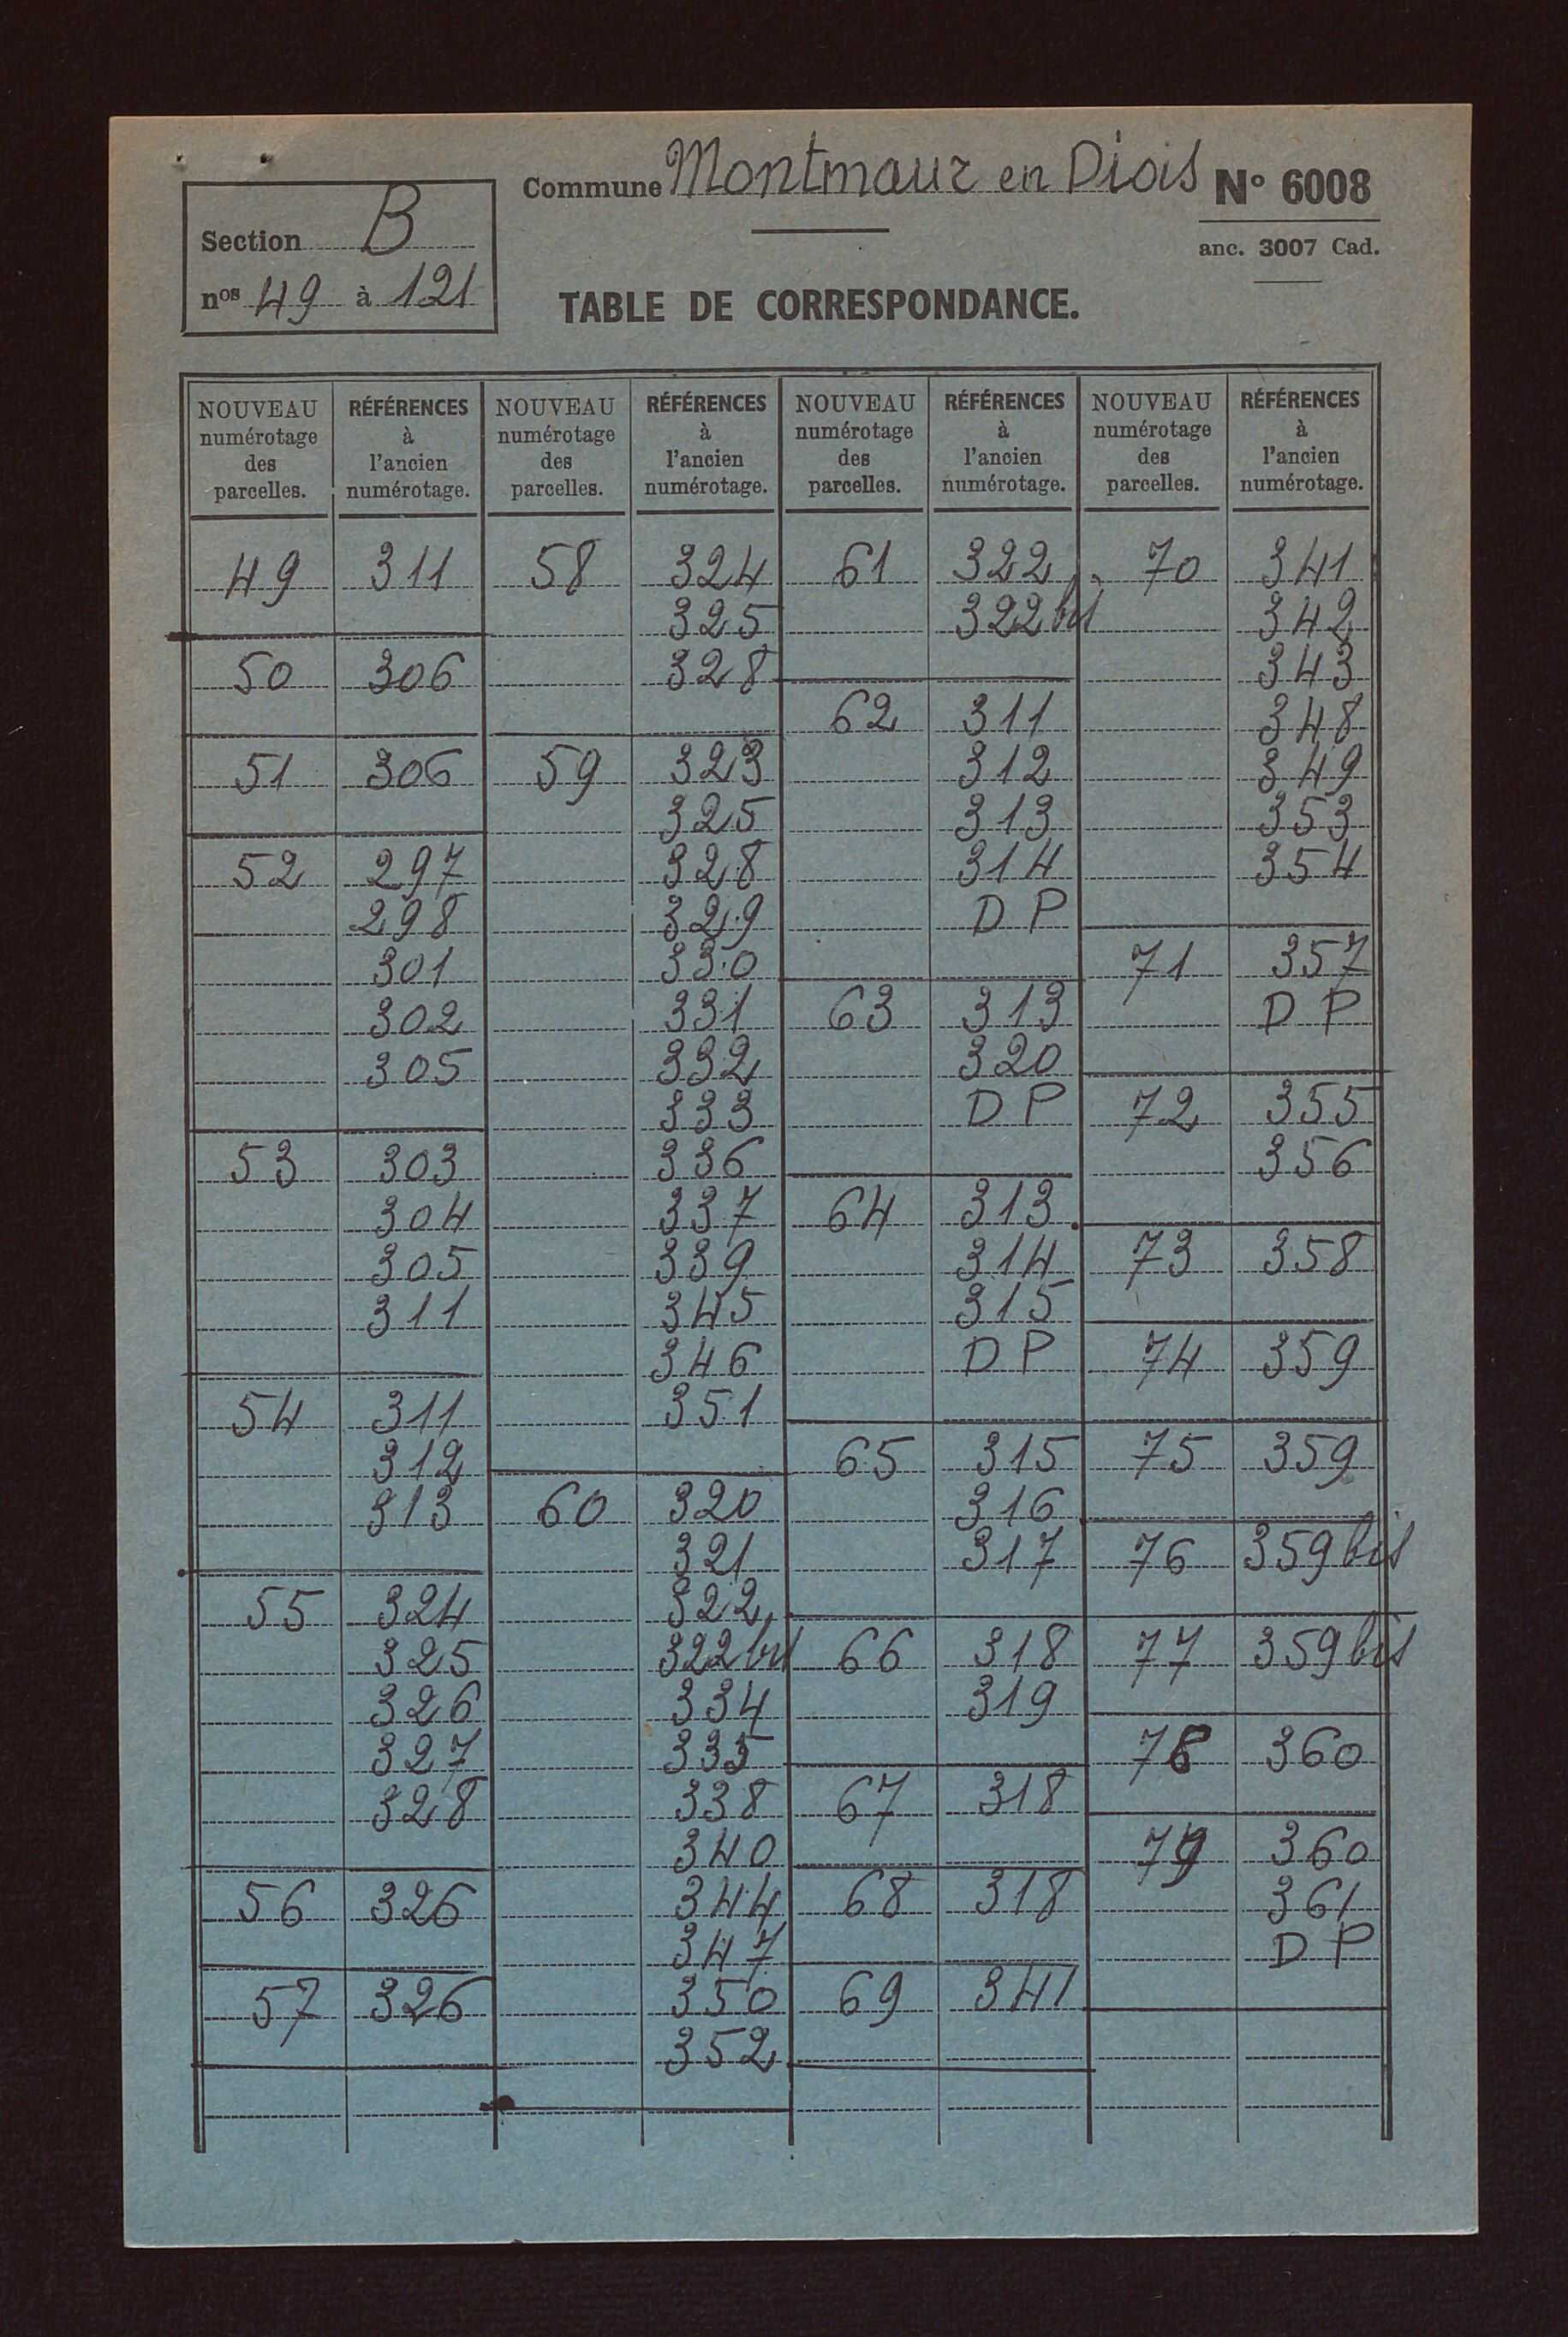 Commune Montmaur en Diois
N° 6008
anc. 3007 Cad.
Section B
nos 49 à 121
TABLE DE CORRESPONDANCE.
NOUVEAU numérotage des parcelles.
RÉFÉRENCES à l'ancien numérotage.
49 311
50 306
51 306
52 297
298
301
302
305
53 303
304
305
311
54 311
312
313
55 324
325
326
327
328
56 326
57 326
NOUVEAU numérotage des parcelles.
RÉFÉRENCES à l'ancien numérotage.
58 324
325
328
59 323
325
328
329
330
331
332
333
336
337
339
345
346
351
60 320
321
322
322 bis
334
335
338
340
344
347
350
352
NOUVEAU numérotage des parcelles.
RÉFÉRENCES à l'ancien numérotage.
61 322
322 bis
62 311
312
313
314
D P
63 313
320
D P
64 313
314
315
D P
65 315
316
317
66 318
319
67 318
68 318
69 341
NOUVEAU numérotage des parcelles.
RÉFÉRENCES à l'ancien numérotage.
70 341
342
343
348
349
353
354
71 357
D P
72 355
356
73 358
74 359
75 359
76 359 bis
77 359 bis
78 360
79 360
361
D P